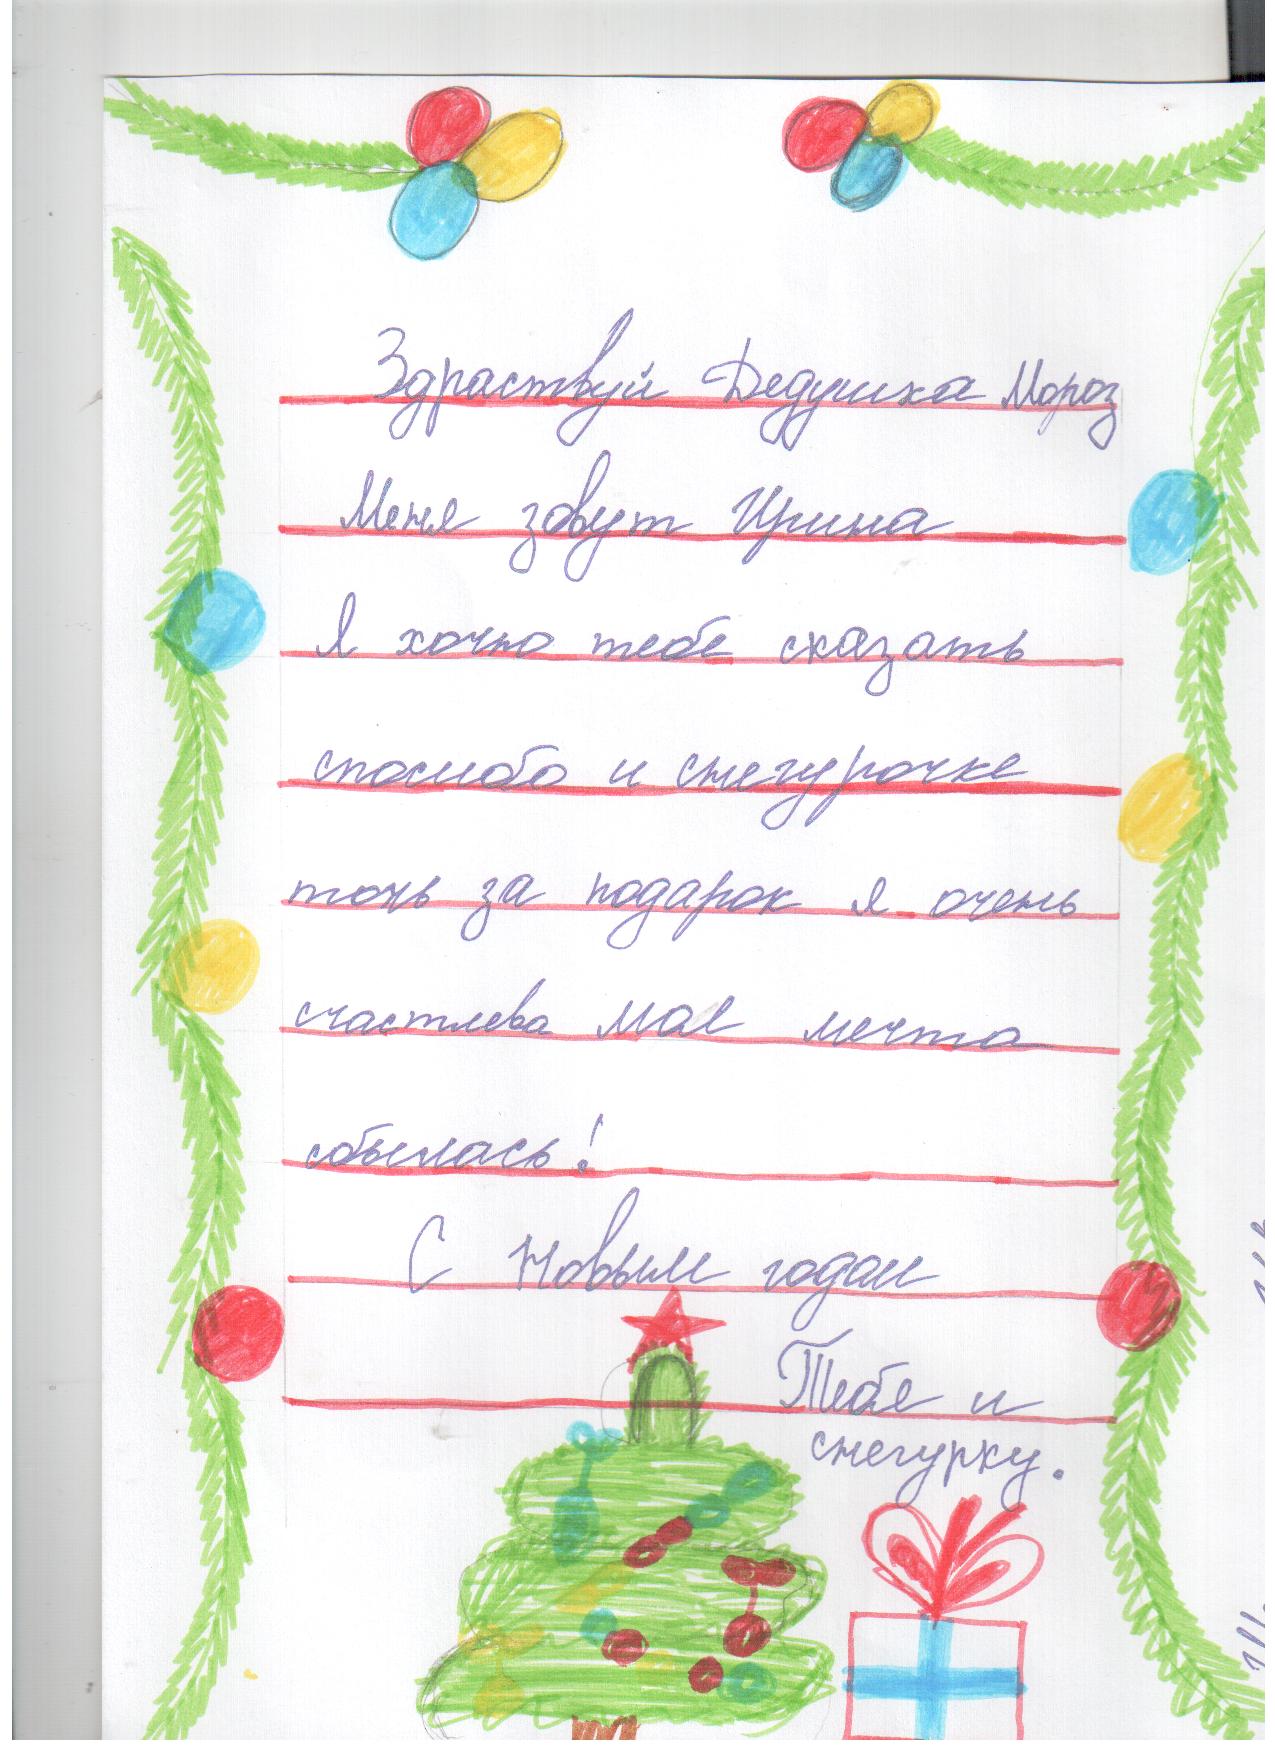 Здраствуй Дедушка Мороз
Меня зовут Ирина
Я хочю тебе сказать
спосибо и снегурочке
точь за подарок я очень
счастлева Мая мечта
сбылась!
С Новым годом
Тебя и
снегурку.